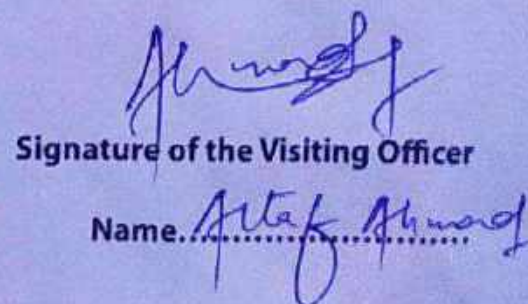 Ahmad
Signature of the Visiting Officer
Name. Altaf Ahmad